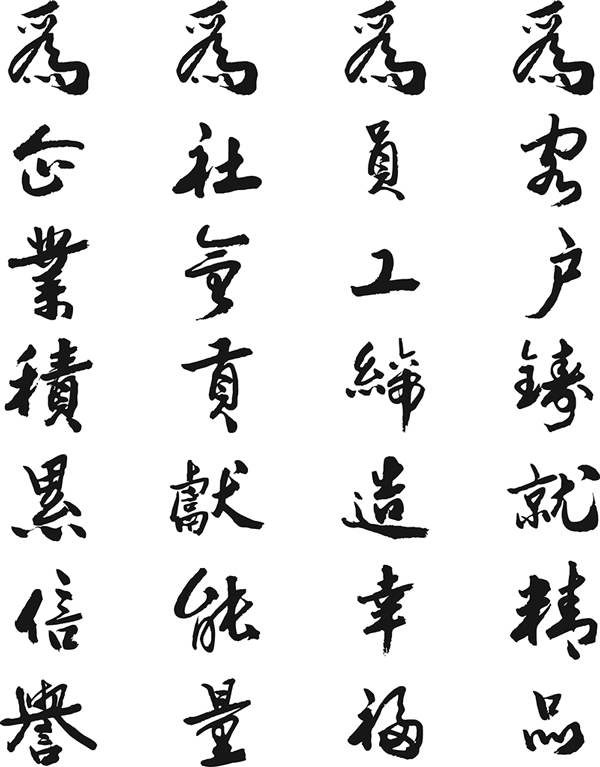 爲客户鑄就精品
爲員工締造幸福
爲社會貢獻能量
爲企業積累信譽